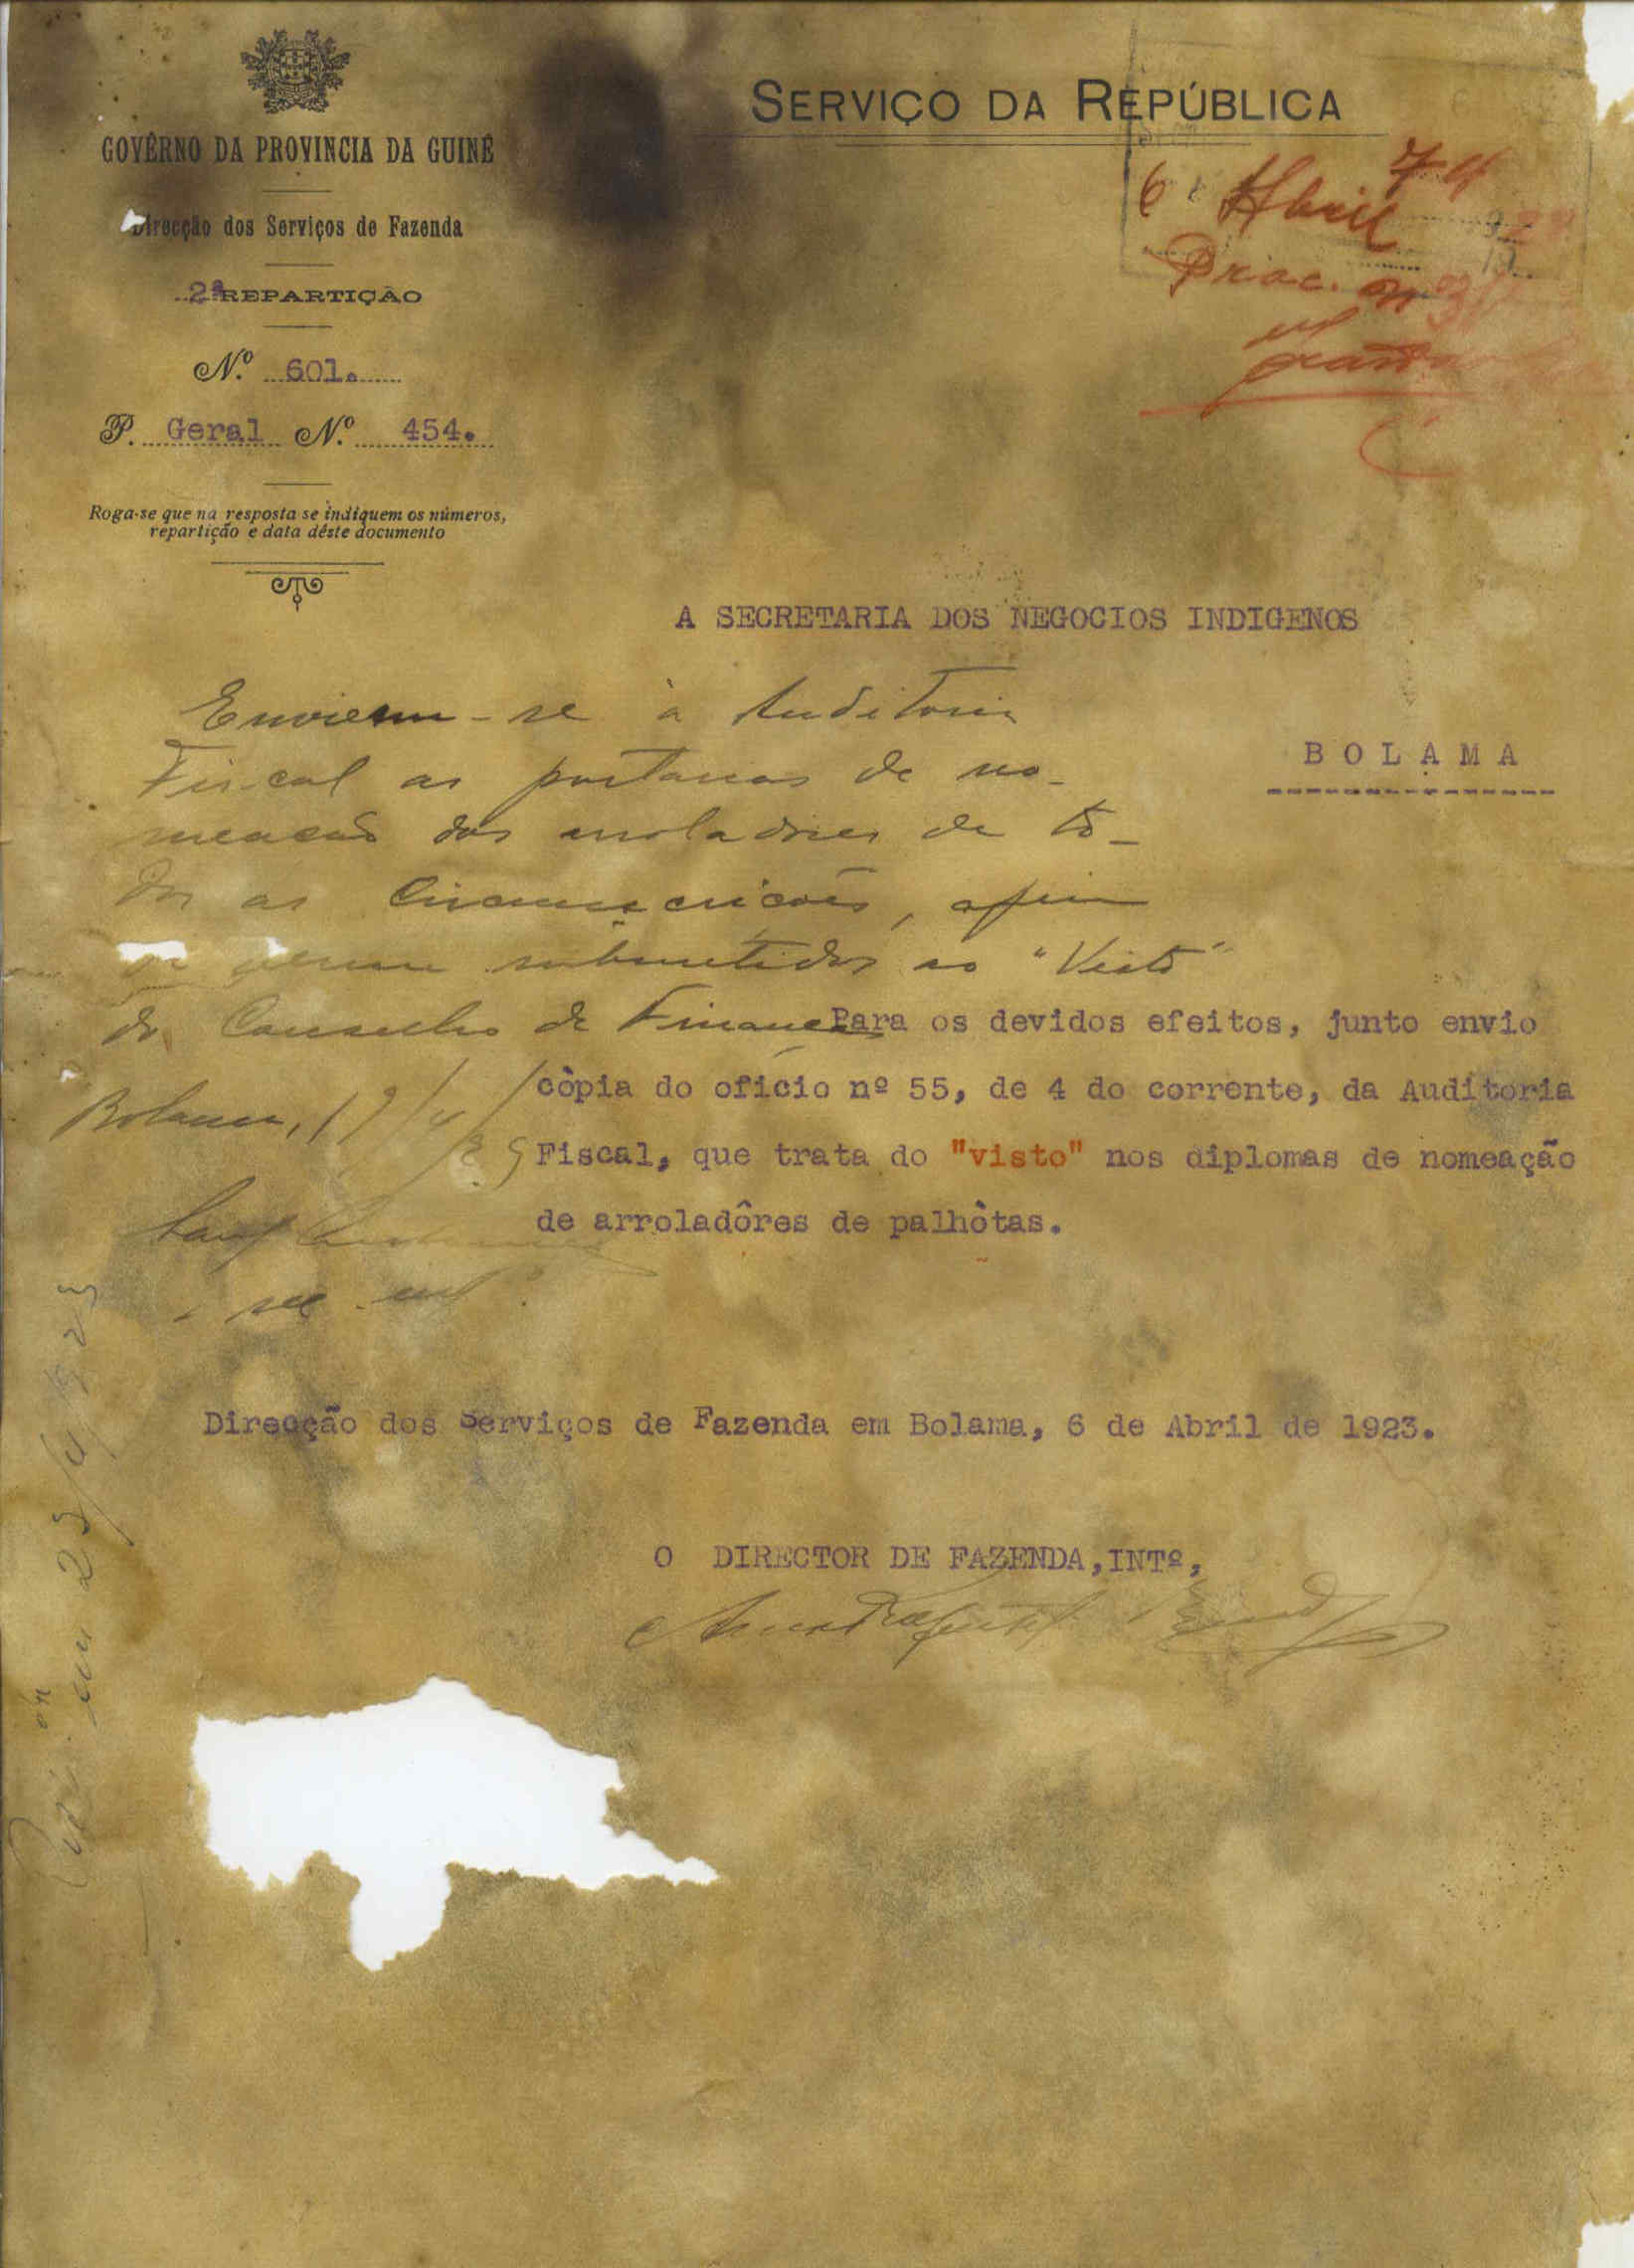 SERVIÇO DA REPÚBLICA
GOVÊRNO DA PROVINCIA DA GUINÉ
Direcção dos Serviços de Fazenda
2ª REPARTIÇÃO
N.º 601.
P. Geral N.º 454.
Roga-se que na resposta se indiquem os números,
repartição e data dêste documento
6 Abril
Proc. nº
A SECRETARIA DOS NEGOCIOS INDIGENOS
BOLAMA
Enviem-se à Auditoria
Fiscal as portarias de no-
meação dos aroladores de to-
das as Circunscrições, afim
de serem submetidas ao "Visto"
do Conselho de Finanças
Bolama,
Para os devidos efeitos, junto envio
còpia do ofício nº 55, de 4 do corrente, da Auditoria
Fiscal, que trata do "visto" nos diplomas de nomeação
de arroladôres de palhòtas.
Direcção dos Serviços de Fazenda em Bolama, 6 de Abril de 1923.
O DIRECTOR DE FAZENDA,INTº,
em 23/4/923